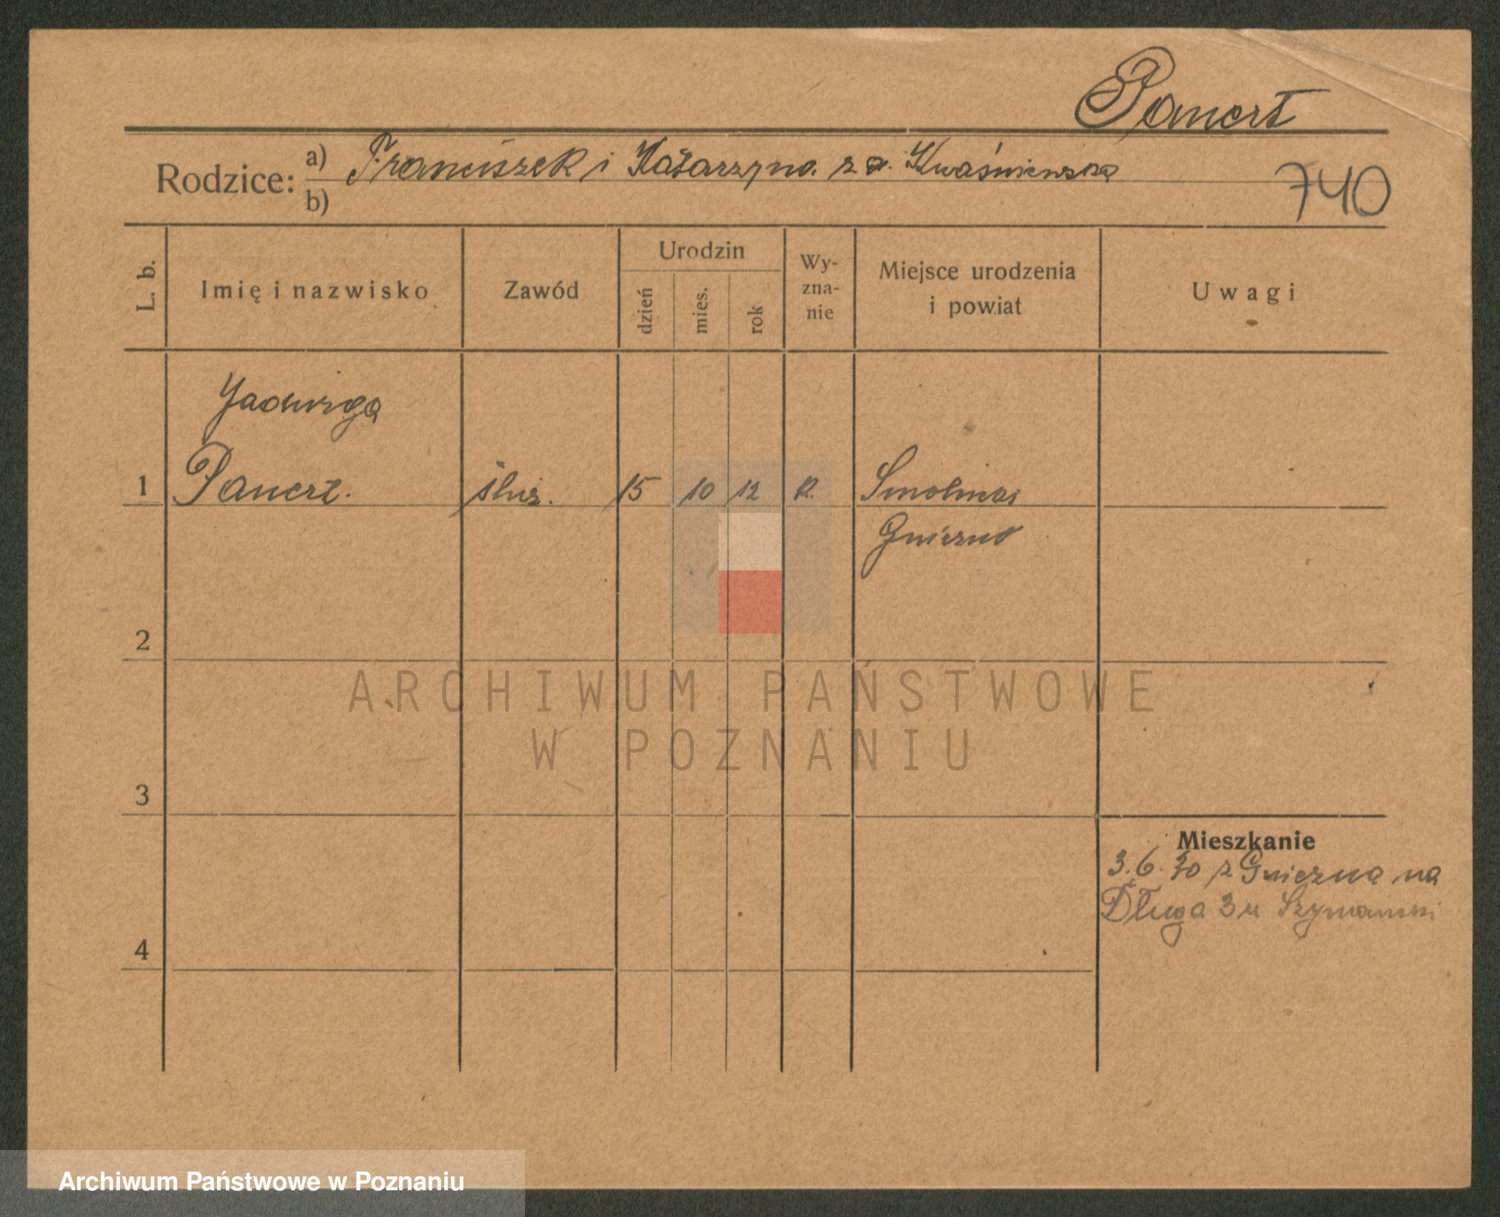 Panert
Rodzice: a) Franciszek i Katarzyna z d. Kwaśniewska
b)
740
L. b.
Imię i nazwisko
Zawód
Urodzin
dzień
mies.
rok
Wy-
zna-
nie
Miejsce urodzenia
i powiat
Uwagi
Jadwiga
1 Panert. 15 10 12
Gniezno
2
ARCHIWUM PAŃSTWOWE
W POZNANIU
3
Mieszkanie
3.6.30 z Gniezna na
Długa 3 u Szymański
4
Archiwum Państwowe w Poznaniu